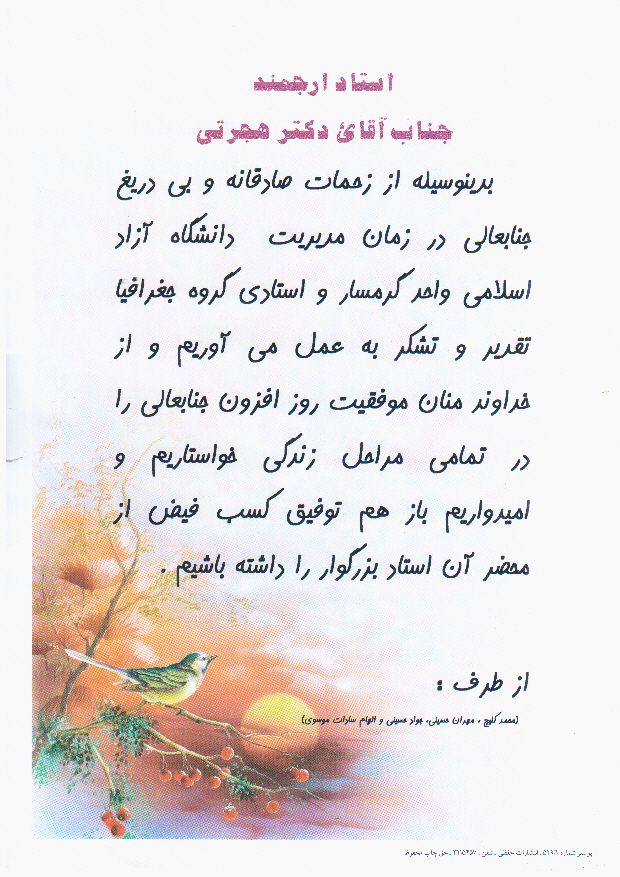 استاد ارجمند
جناب آقائ دکتر هجرتی
بدینوسیله از زحمات صادقانه و بی دریغ
جنابعالی در زمان مدیریت دانشگاه آزاد
اسلامی واحد گرمسار و استادی گروه جغرافیا
تقدیر و تشکر به عمل می آوریم و از
خداوند منان موفقیت روز افزون جنابعالی را
در تمامی مراحل زندگی خواستاریم و
امیدواریم باز هم توفیق کسب فیض از
محضر آن استاد بزرگوار را داشته باشیم .
از طرف :
(محمد گلیج ، مهران حسینی، جواد حسینی و الهام سادات موسوی)
پوستر شماره انتشارات تلفن حق چاپ محفوظ